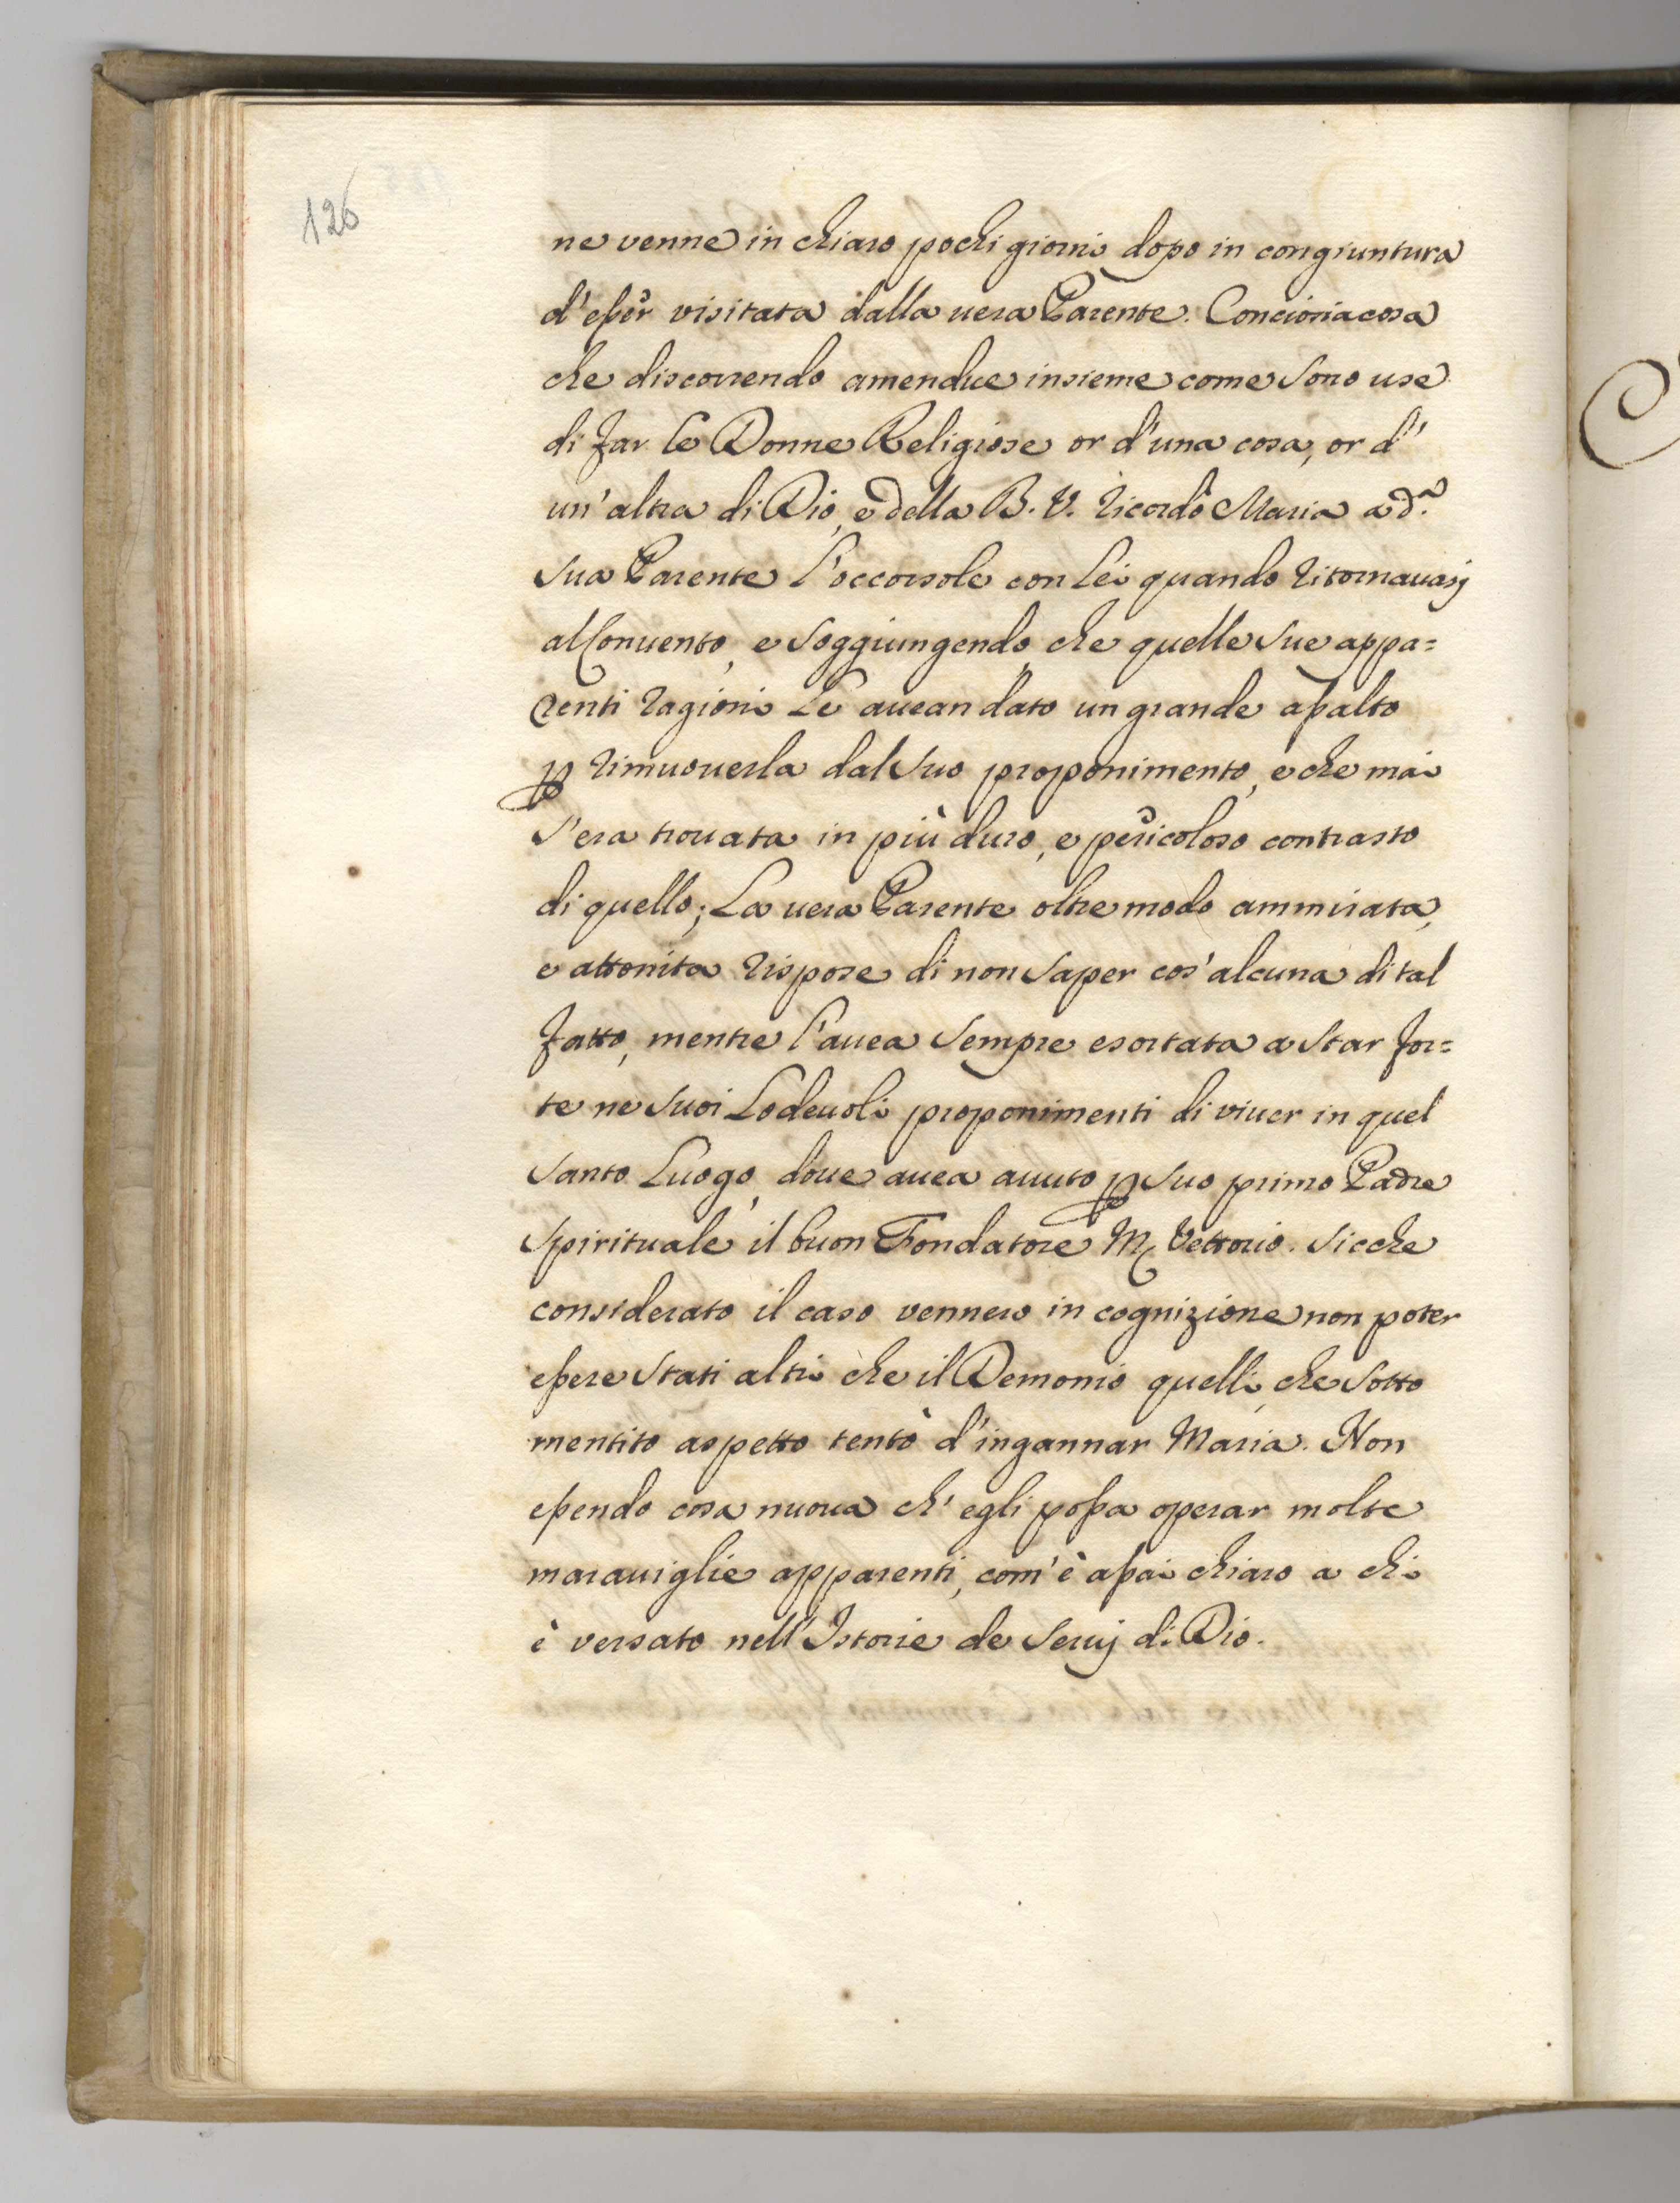 126
ne venne in chiaro pochi giorni dopo in congiuntura
d'esser visitata dalla uera Parente. Conciosiacosa
che discorrendo amendue insieme come sono use
di far le Donne Religiose or d'una cosa, or d'
un'altra di Dio, e della B. V. ricordò Maria a d.ª
sua Parente l'occorsole con Lei quando ritornauasi
al Conuento, e soggiungendo, che quelle sue appa=
renti ragioni Le auean dato un grande assalto
ꝑ rimuouerla dal suo proponimento, e che mai
s'era trouata in più duro, e pericoloso contrasto
di quello; La uera Parente oltremodo ammirata,
e attonita rispose di non saper cos'alcuna di tal
fatto, mentre l'auea sempre esortata a star for=
te ne suoi Lodeuoli proponimenti di viuer in quel
santo Luogo, doue auea auuto ꝑ suo primo Padre
spirituale il buon Fondatore M. Vettorio. Sicche
considerato il caso vennero in cognizione non poter
essere stati altri che il Demonio quelli, che sotto
mentito aspetto tentò d'ingannar Maria. Non
essendo cosa nuoua ch'egli possa operar molte
marauiglie apparenti, com'è assai chiaro a chi
è versato nell'Istorie de Serui di Dio.